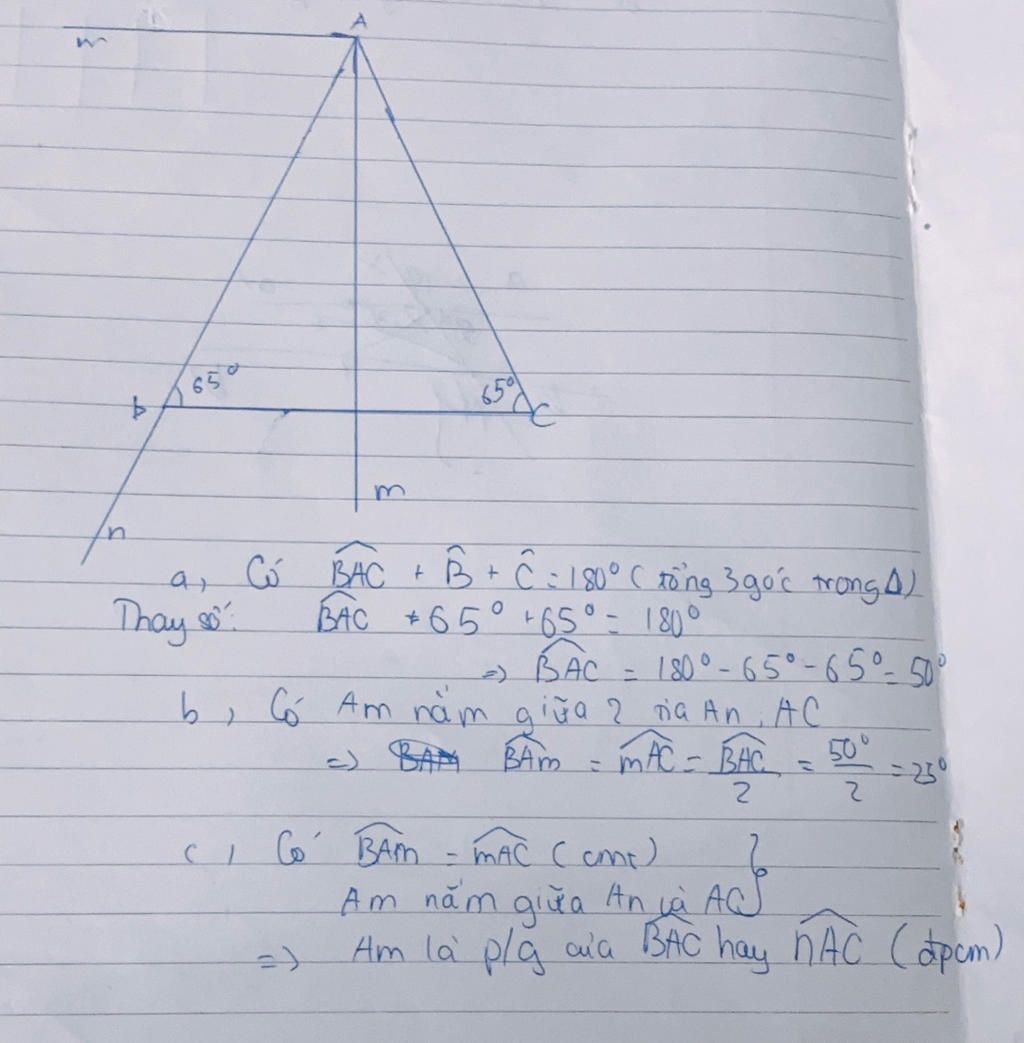 A
m
65°
65°
b
C
m
n
a, Có BAC + B̂ + Ĉ = 180° ( tổng 3 góc trong Δ)
Thay số: BAC + 65° + 65° = 180°
=> BAC = 180° - 65° - 65° = 50°
b, Có Am nằm giữa 2 tia An, AC
=> BAm = mAC = BAC/2 = 50°/2 = 25°
c, Có BAm = mAC (cmt) }
Am nằm giữa An và AC
=> Am là p/g của BAC hay nAC (đpcm)